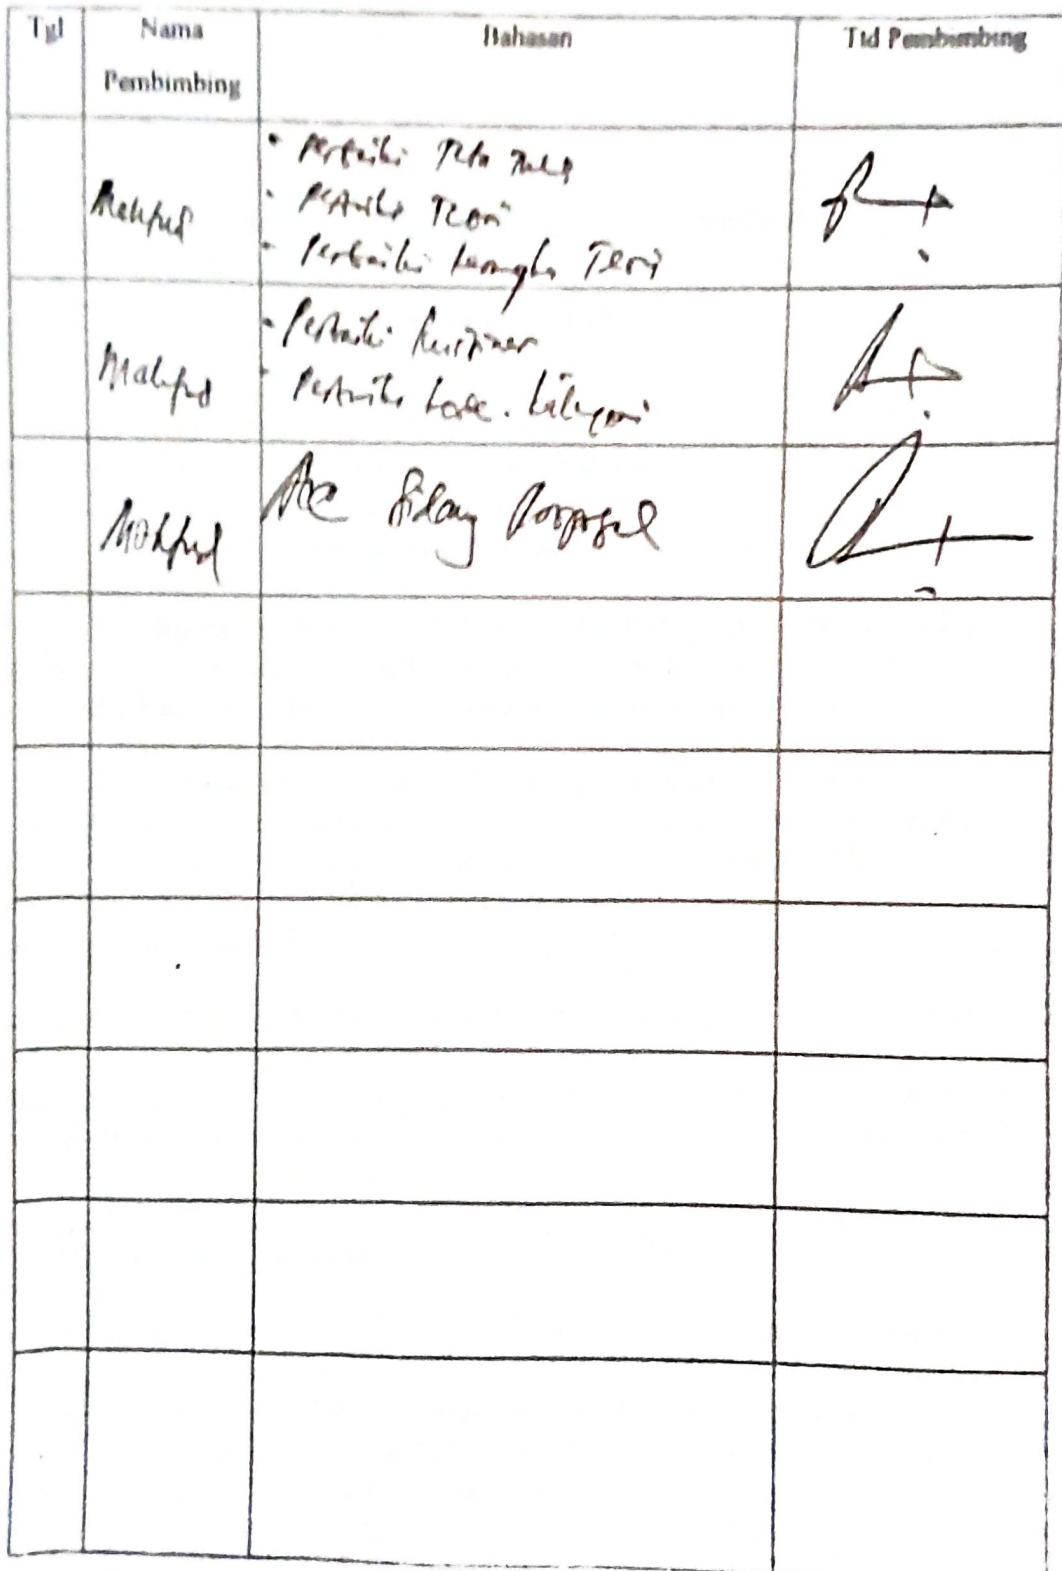 Tgl Nama Pembimbing Bahasan Ttd Pembimbing
Mahfud
- Perbaiki Tata Tulis
- Perbaiki Teori
- Perbaiki kerangka Teori
Mahfud
- Perbaiki kuisioner
- Perbaiki
Mahfud
Acc Sidang Proposal